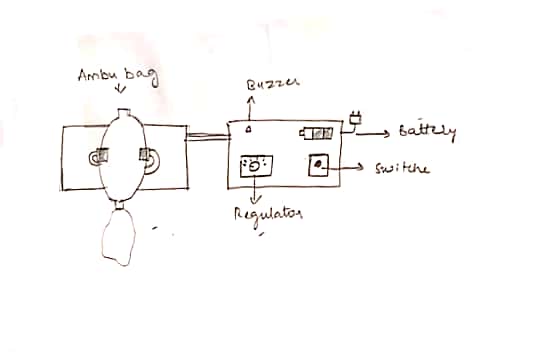 Ambu bag
Buzzer
Battery
Switche
Regulator